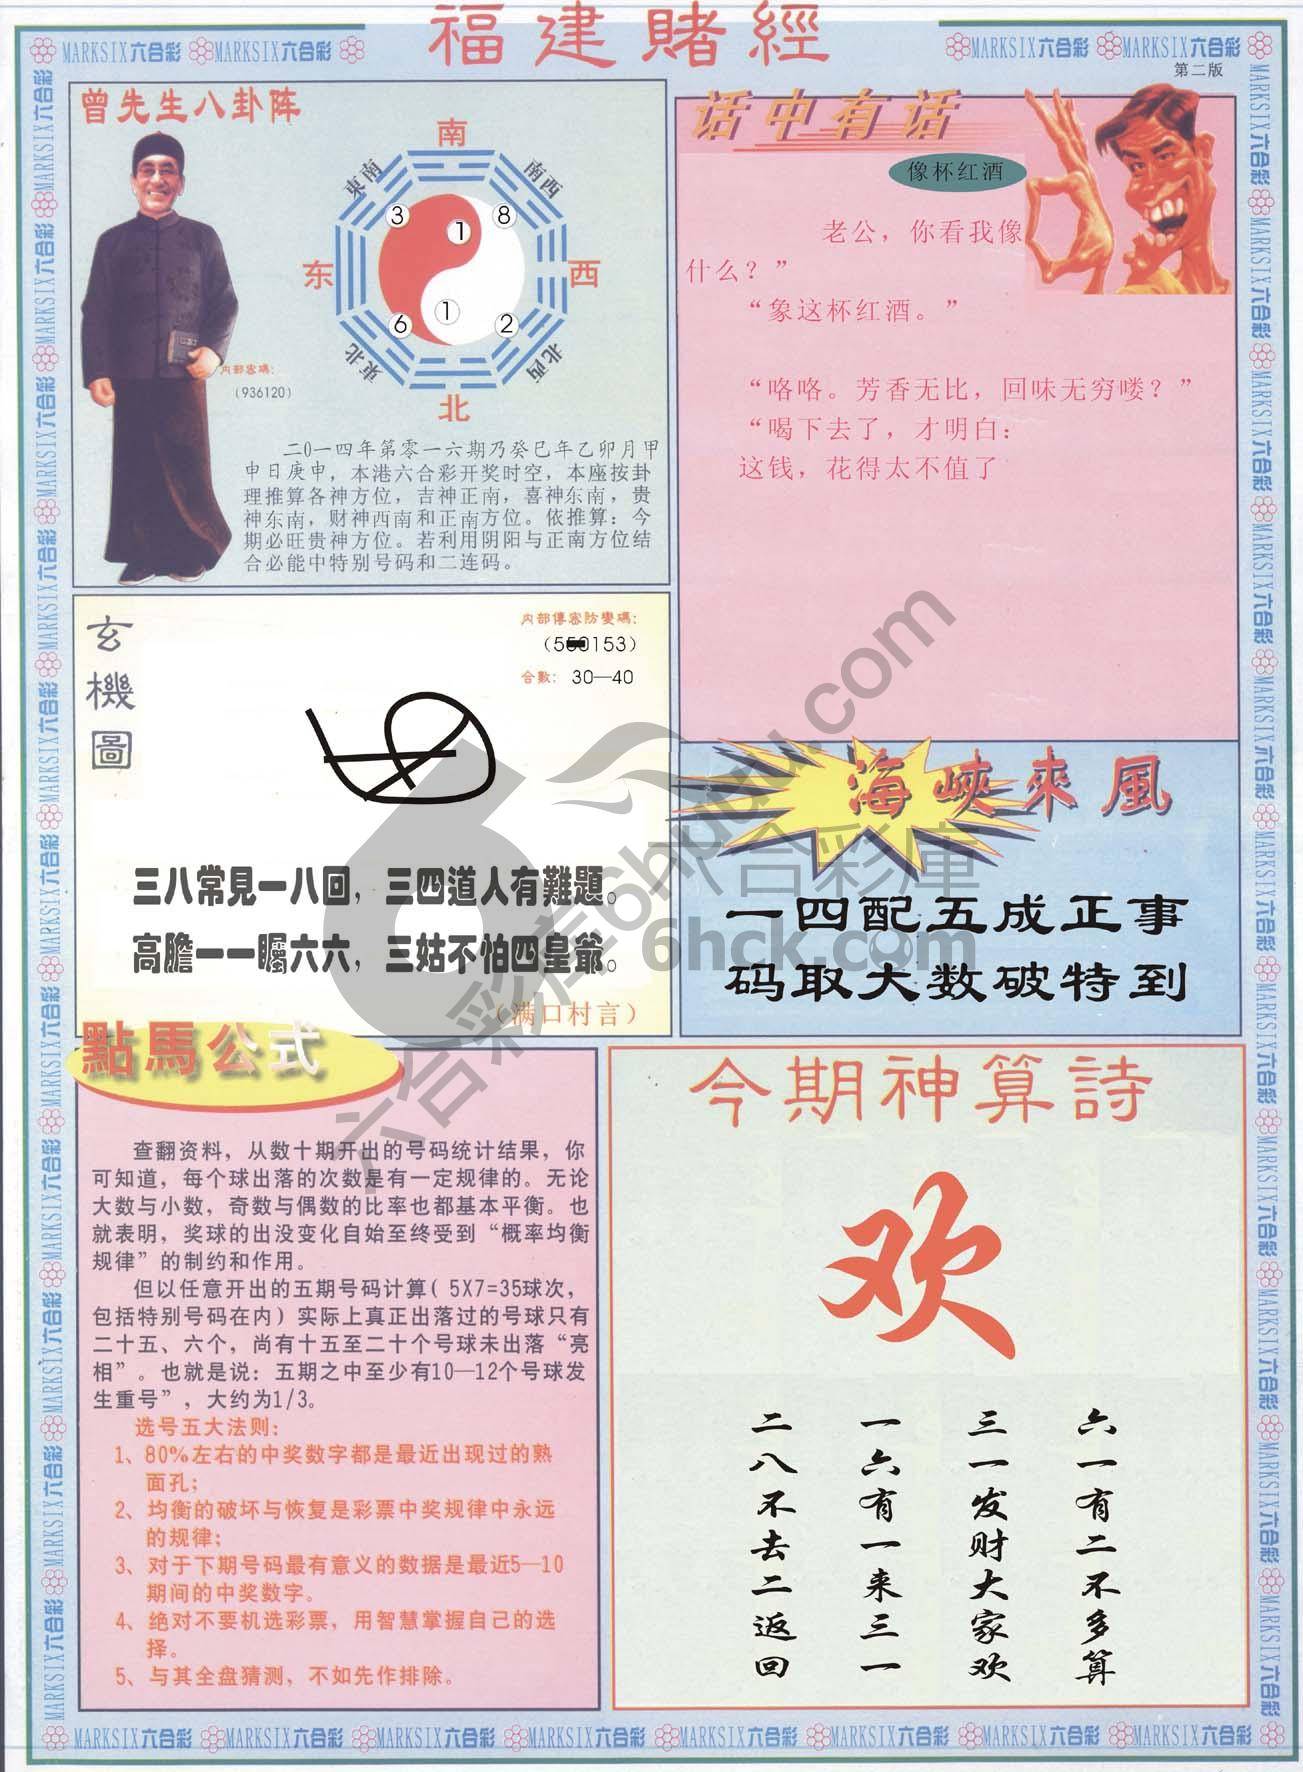 福建賭經
MARKSIX六合彩 MARKSIX六合彩
MARKSIX六合彩 MARKSIX六合彩
第二版
曾先生八卦阵
南
東南
南西
3
1
8
东
西
6
1
2
東北
北西
北
内部密碼：
（936120）
二0一四年第零一六期乃癸巳年乙卯月甲
申日庚申，本港六合彩开奖时空，本座按卦
理推算各神方位，吉神正南，喜神东南，贵
神东南，财神西南和正南方位。依推算：今
期必旺贵神方位。若利用阴阳与正南方位结
合必能中特别号码和二连码。
话中有话
像杯红酒
老公，你看我像
什么？”
“象这杯红酒。”
“咯咯。芳香无比，回味无穷喽？”
“喝下去了，才明白：
这钱，花得太不值了
玄機圖
内部傳密防變碼：
（550153）
合數： 30—40
三八常見一八回，三四道人有難題。
高膽一一矚六六，三姑不怕四皇爺。
（满口村言）
海峽來風
一四配五成正事
码取大数破特到
點馬公式
查翻资料，从数十期开出的号码统计结果，你
可知道，每个球出落的次数是有一定规律的。无论
大数与小数，奇数与偶数的比率也都基本平衡。也
就表明，奖球的出没变化自始至终受到“概率均衡
规律”的制约和作用。
但以任意开出的五期号码计算（5X7=35球次，
包括特别号码在内）实际上真正出落过的号球只有
二十五、六个，尚有十五至二十个号球未出落“亮
相”。也就是说：五期之中至少有10—12个号球发
生重号”，大约为1/3。
选号五大法则：
1、80%左右的中奖数字都是最近出现过的熟
面孔；
2、均衡的破坏与恢复是彩票中奖规律中永远
的规律；
3、对于下期号码最有意义的数据是最近5—10
期间的中奖数字。
4、绝对不要机选彩票，用智慧掌握自己的选
择。
5、与其全盘猜测，不如先作排除。
今期神算詩
欢
六一有二不多算
三一发财大家欢
一六有一来三一
二八不去二返回
六合彩库6hhudu.com
六合彩庫
6hck.com
MARKSIX六合彩 MARKSIX六合彩 MARKSIX六合彩 MARKSIX六合彩 MARKSIX六合彩 MARKSIX六合彩 MARKSIX六合彩 MARKSIX六合彩